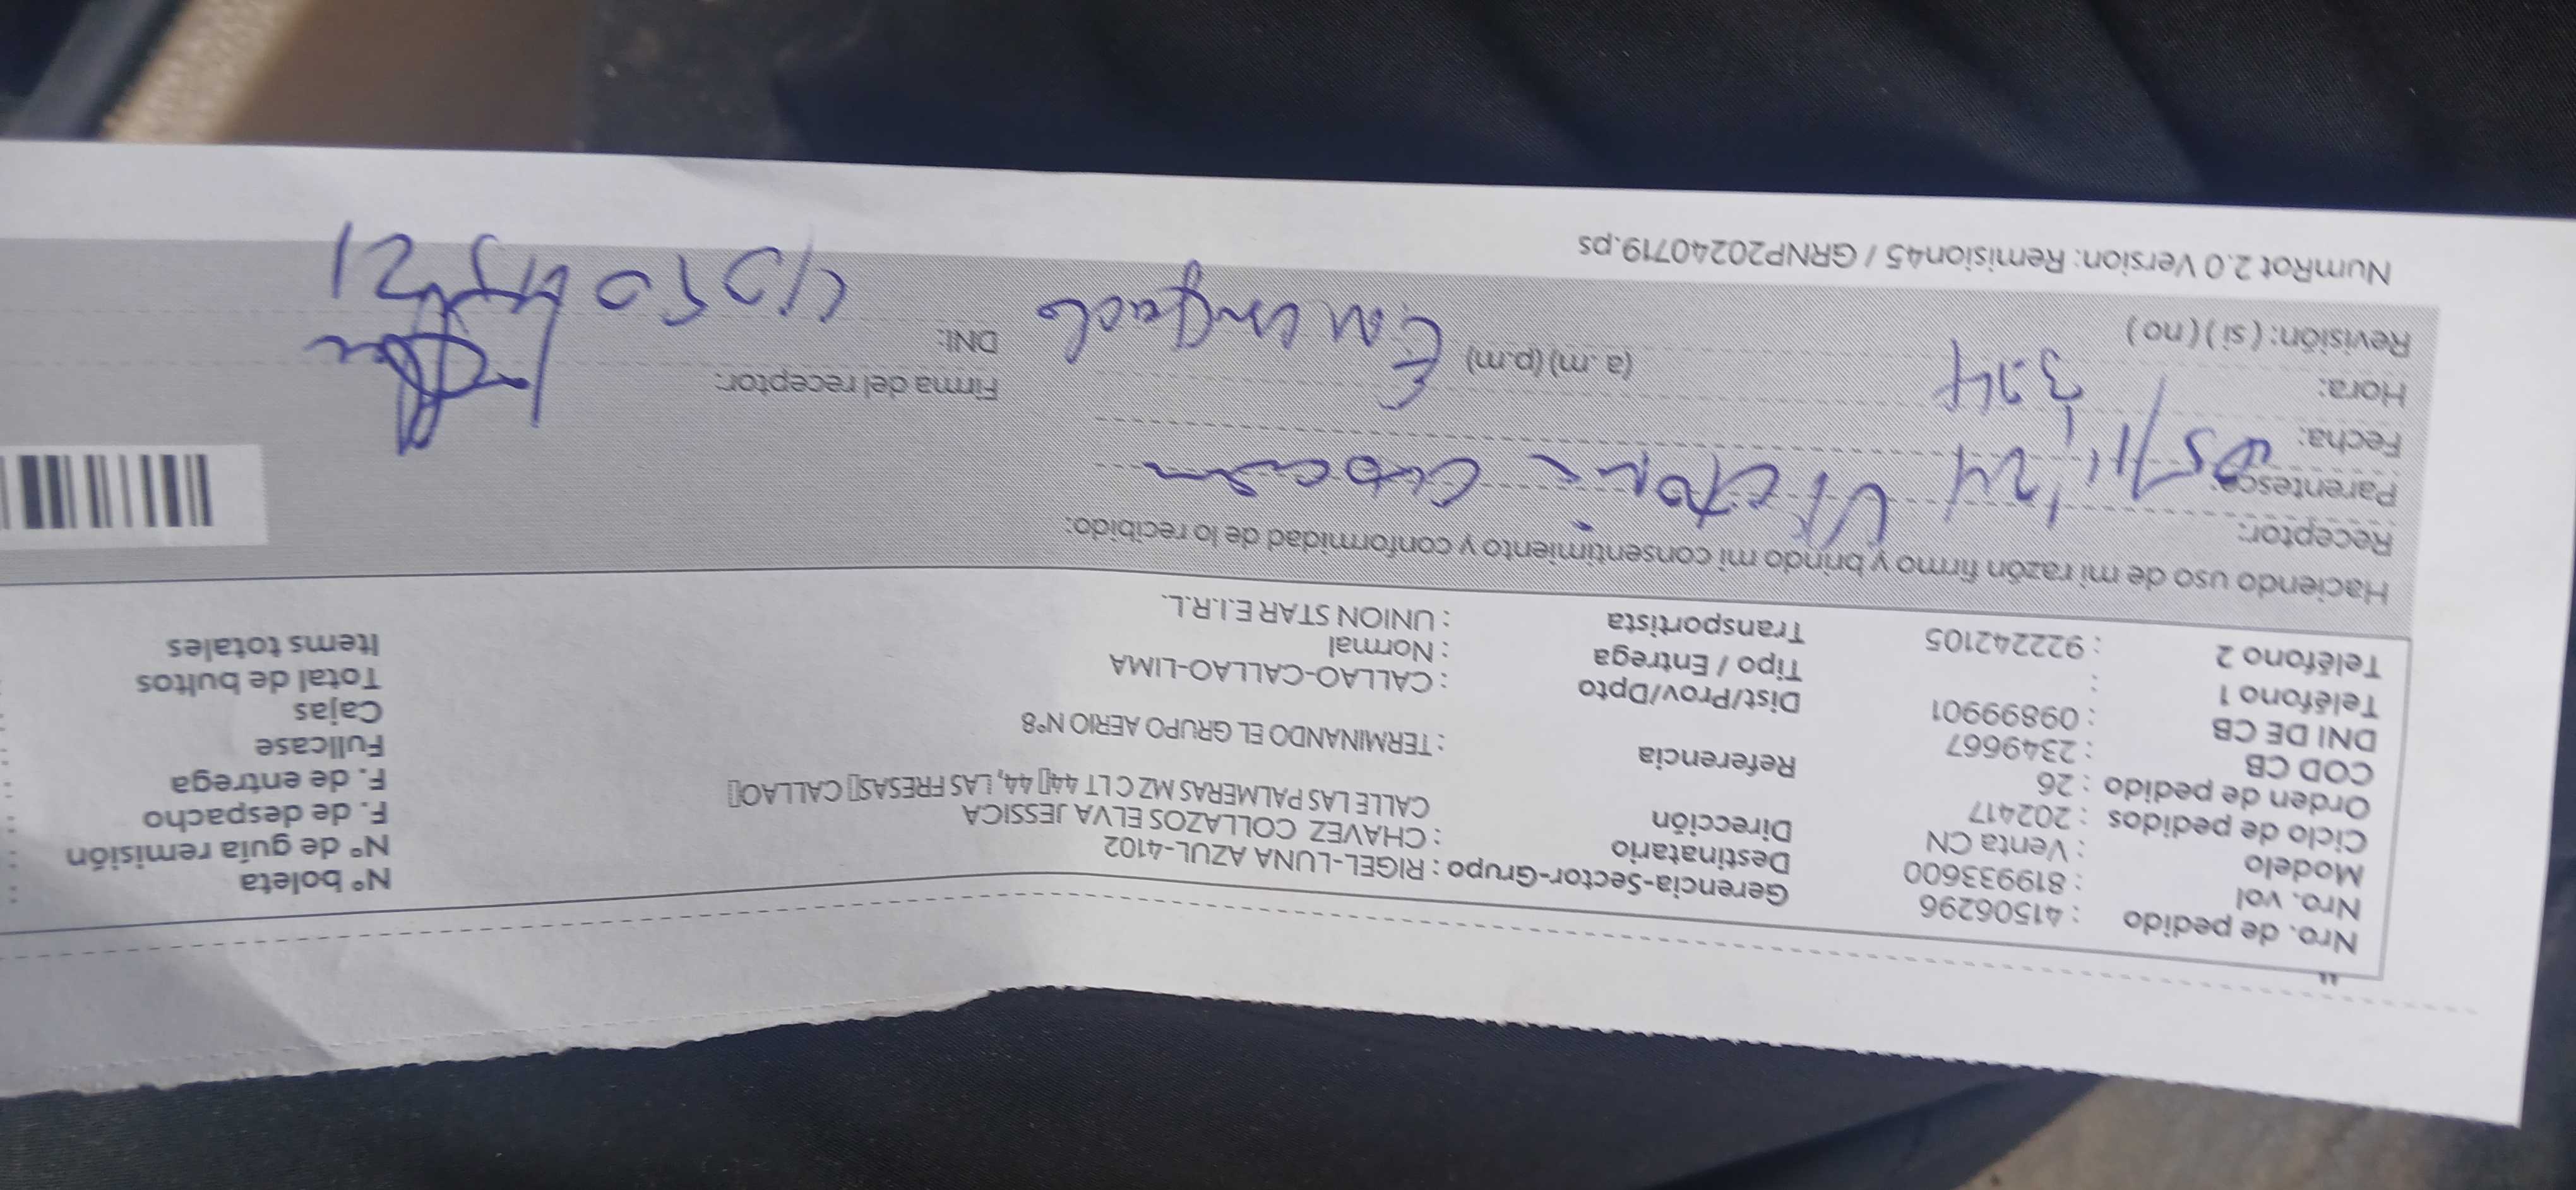 Nro. de pedido : 41506296
Nro. vol : 819933600
Modelo : Venta CN
Ciclo de pedidos : 202417
Orden de pedido : 26
COD CB : 2349667
DNI DE CB : 09899901
Teléfono 1 :
Teléfono 2 : 922242105
Gerencia-Sector-Grupo : RIGEL-LUNA AZUL-4102
Destinatario : CHAVEZ COLLAZOS ELVA JESSICA
Dirección CALLE LAS PALMERAS MZ C LT 44▯ 44, LAS FRESAS▯ CALLAO▯
Referencia : TERMINANDO EL GRUPO AERIO N°8
Dist/Prov/Dpto : CALLAO-CALLAO-LIMA
Tipo / Entrega : Normal
Transportista : UNION STAR E.I.R.L.
N° boleta :
N° de guía remisión :
F. de despacho :
F. de entrega :
Fullcase
Cajas
Total de bultos
Items totales
Haciendo uso de mi razón firmo y brindo mi consentimiento y conformidad de lo recibido:
Receptor:
Parentesco:
Fecha: 05/11/24
Hora: 3:24 (a.m) (p.m)
Revisión: ( si ) ( no )
Firma del receptor:
DNI:
Encargado
NumRot 2.0 Version: Remision45 / GRNP20240719.ps